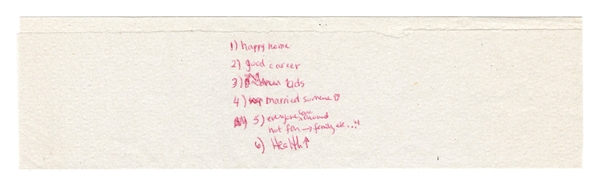 1) happy home
2) good career
3) kids
4) married someone
5) everyone around
not far → family etc...
6) Health↑